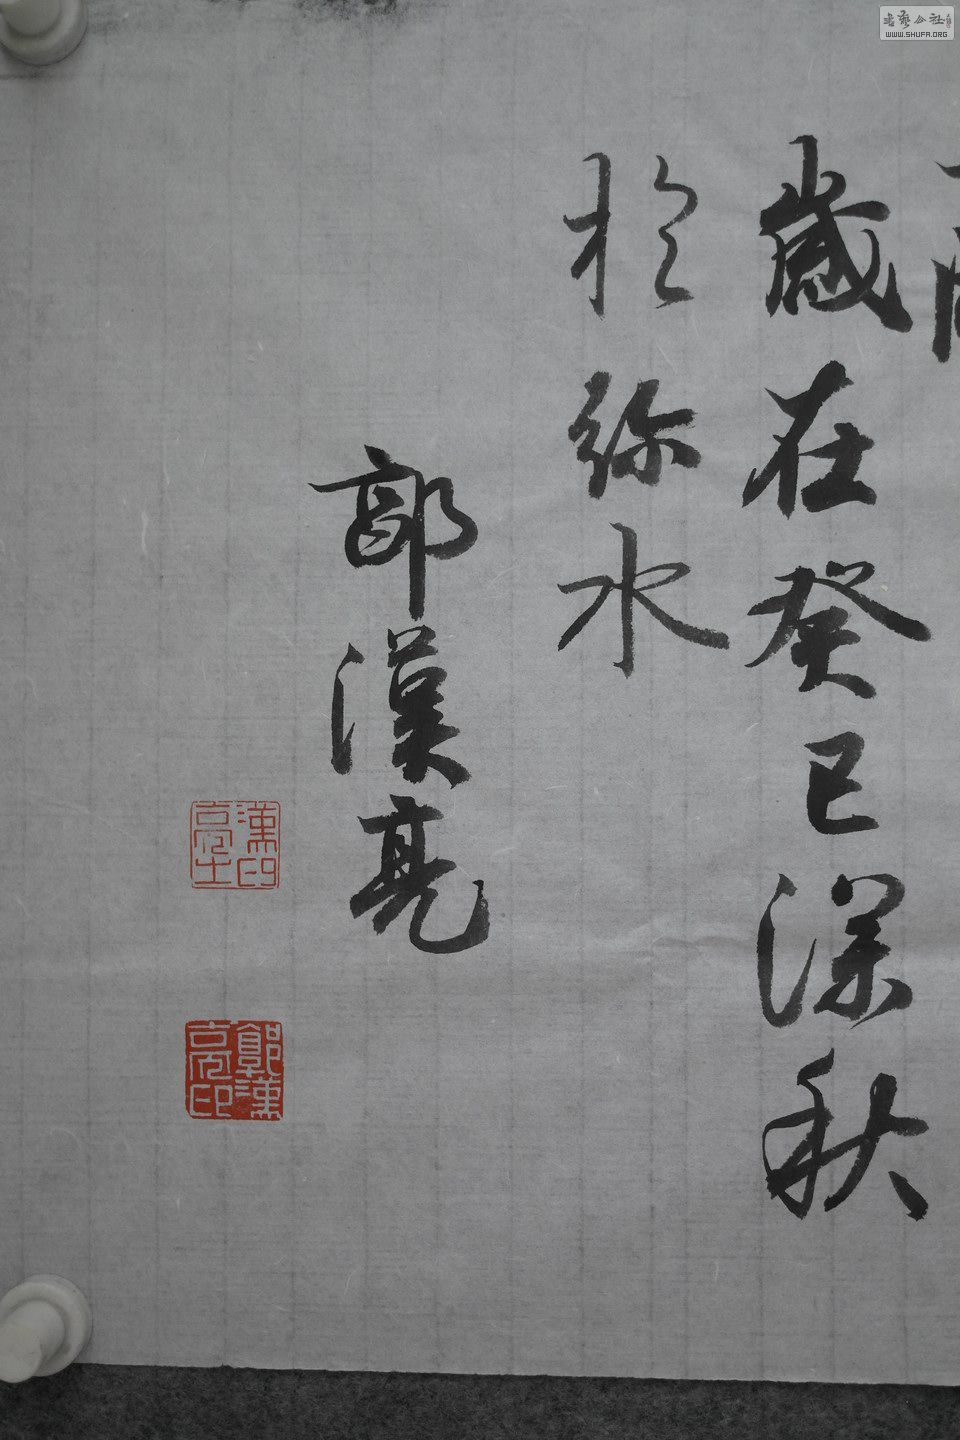 歲在癸巳深秋
於弥水
郭漢亮
漢亮印士
郭漢亮印
书艺公社
WWW.SHUFA.ORG